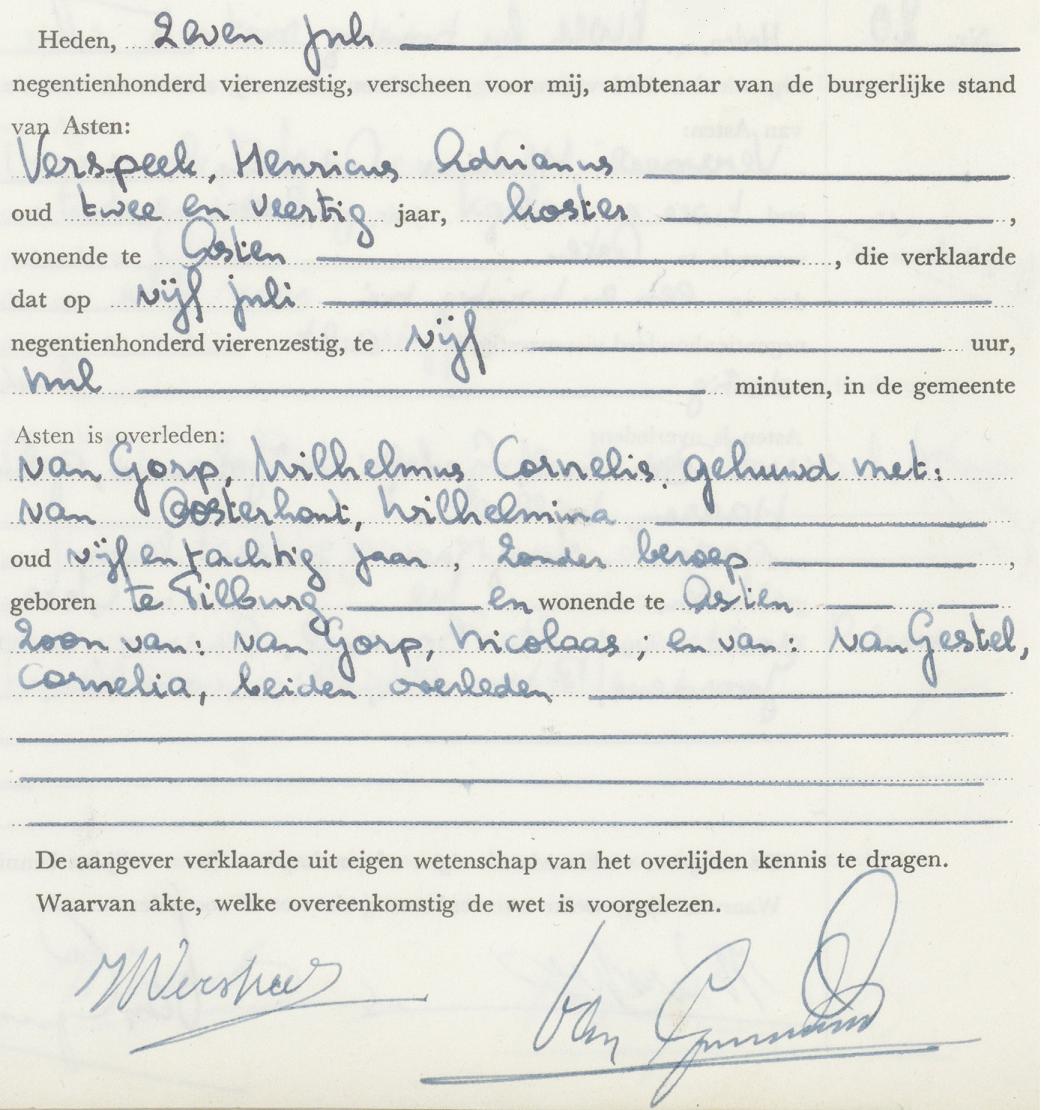 Heden, zeven juli
negentienhonderd vierenzestig, verscheen voor mij, ambtenaar van de burgerlijke stand
van Asten:
Verspeek, Henricus Adrianus
oud twee en veertig jaar, koster,
wonende te Asten, die verklaarde
dat op vijf juli
negentienhonderd vierenzestig, te vijf uur,
nul minuten, in de gemeente
Asten is overleden:
van Gorp, Wilhelmus Cornelis, gehuwd met:
van Oosterhout, Wilhelmina
oud vijf en tachtig jaar, zonder beroep,
geboren te Tilburg en wonende te Asten
zoon van: van Gorp, Nicolaas, en van: van Gestel,
Cornelia, beiden overleden
De aangever verklaarde uit eigen wetenschap van het overlijden kennis te dragen.
Waarvan akte, welke overeenkomstig de wet is voorgelezen.
van